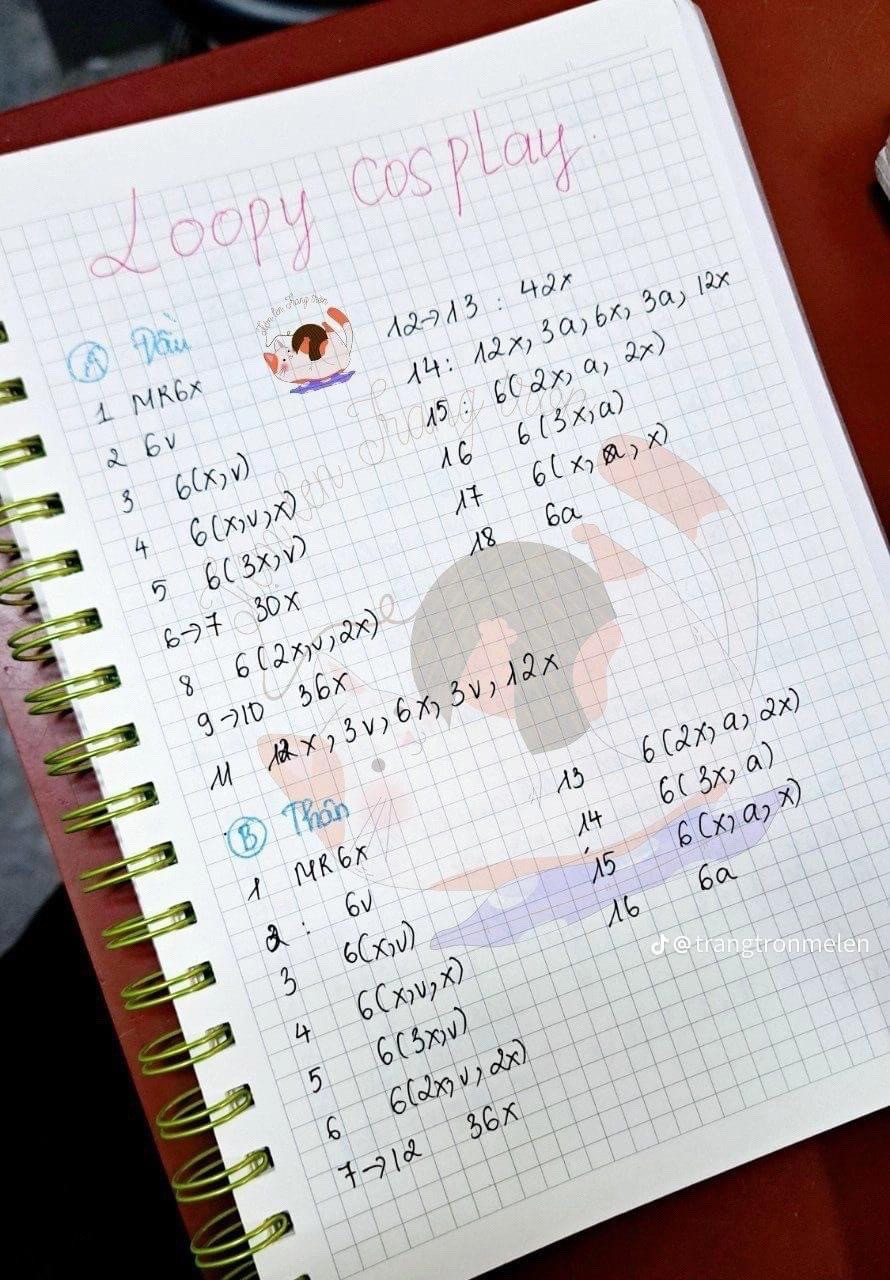 Loopy cosplay.
A Đầu
1 MR6x
2 6v
3 6(x,v)
4 6(x,v,x)
5 6(3x,v)
6→7 30x
8 6(2x,v,2x)
9→10 36x
11 12x, 3v, 6x, 3v, 12x
12→13 : 42x
14: 12x, 3a, 6x, 3a, 12x
15: 6(2x, a, 2x)
16 6(3x,a)
17 6(x, a, x)
18 6a
B Thân
1 MR6x
2 : 6v
3 6(x,v)
4 6(x,v,x)
5 6(3x,v)
6 6(2x, v, 2x)
7→12 36x
13 6(2x, a, 2x)
14 6(3x, a)
15 6(x, a, x)
16 6a
@trangtronmelen